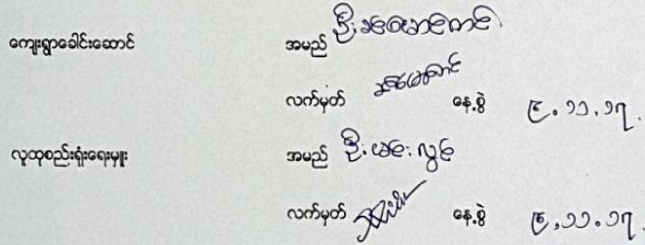 ကျေးရွာခေါင်းဆောင် အမည် ဦး
လက်မှတ် နေ့စွဲ ၉.၁၁.၁၇.
လူထုစည်းရုံးရေးမှူး အမည် ဦး လွင်
လက်မှတ် နေ့စွဲ ၉.၁၁.၁၇.